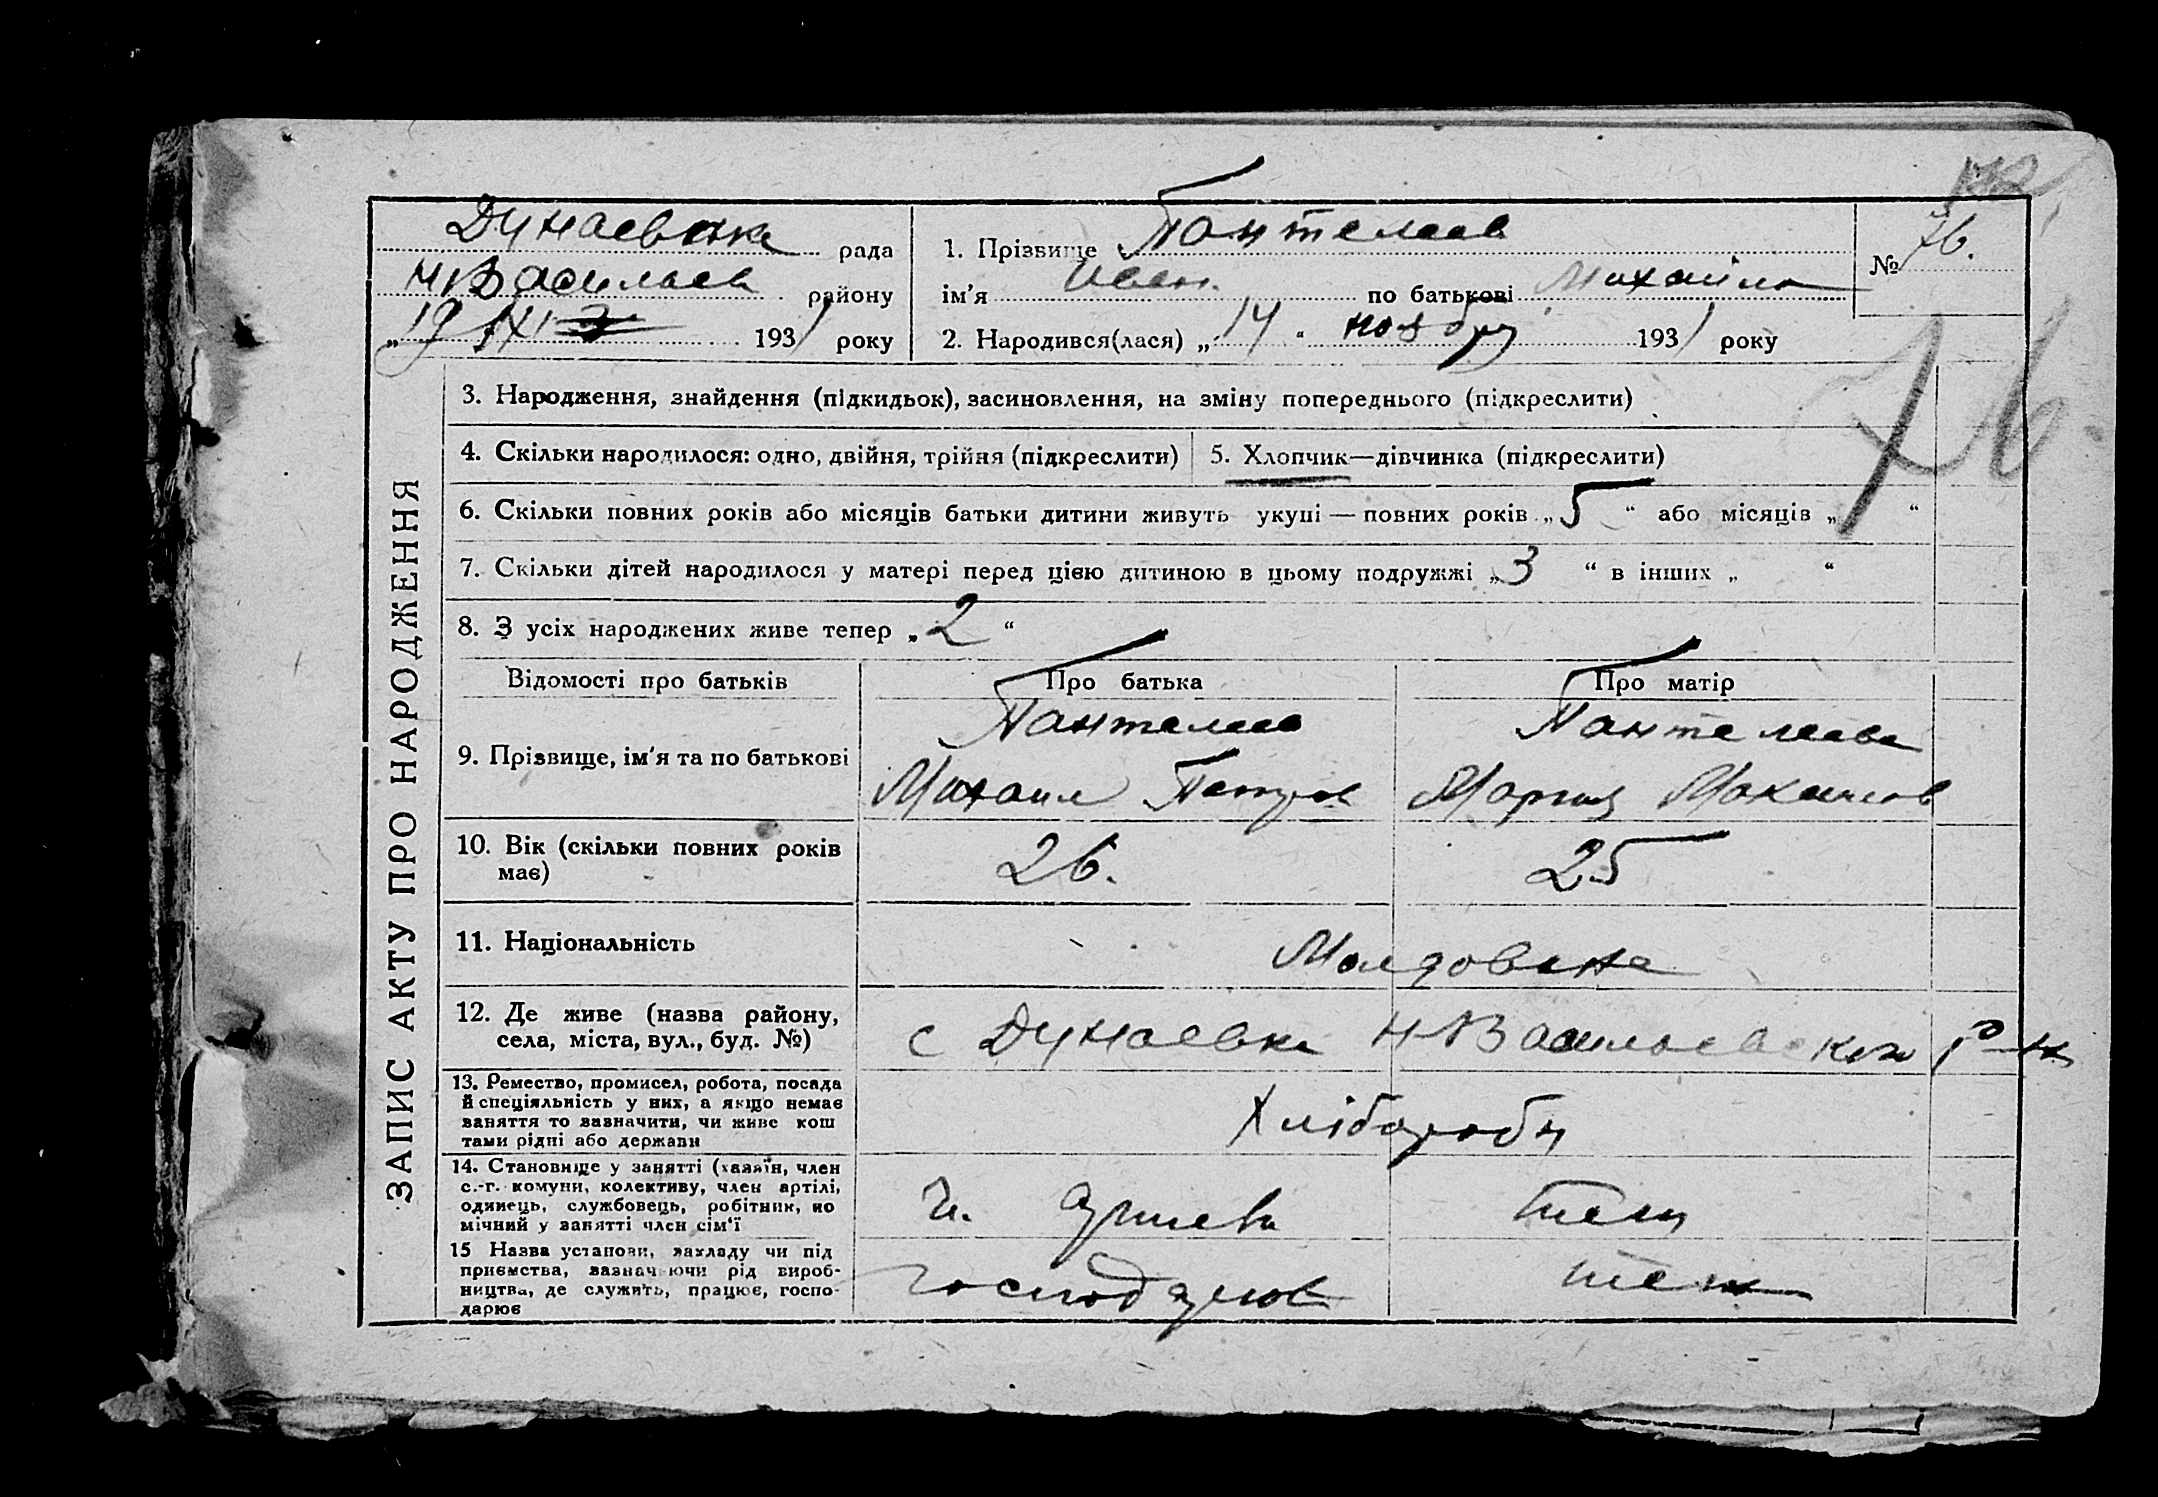 ЗАПИС АКТУ ПРО НАРОДЖЕННЯ
Дунаевка рада
Н Василев району
„19 XI 1931 року
1. Прізвище Пантелеев
ім'я Иван. по батькові Михайло
2. Народився(лася) „14 “ ноября 1931 року
№ 76.
76
3. Народження, знайдення (підкидьок), засиновлення, на зміну попереднього (підкреслити)
4. Скільки народилося: одно, двійня, трійня (підкреслити)
5. Хлопчик—дівчинка (підкреслити)
6. Скільки повних років або місяців батьки дитини живуть укупі — повних років „5 “ або місяців „ “
7. Скільки дітей народилося у матері перед цією дитиною в цьому подружжі „3 “ в інших „ “
8. З усіх народжених живе тепер „2 “
Відомості про батьків
Про батька
Про матір
9. Прізвище, ім'я та по батькові
Пантелеев
Михаил Петров
Пантелеева
Мария
10. Вік (скільки повних років
має)
26.
25
11. Національність
Молдоване
12. Де живе (назва району,
села, міста, вул., буд. №)
с Дунаевка Н-Василевского р-н
13. Ремество, промисел, робота, посада
й спеціяльність у них, а якщо немає
заняття то зазначити, чи живе кош
тами рідні або держави
Хлібороби
14. Становище у занятті (хазяїн, член
с.-г. комуни, колективу, член артілі,
одинець, службовець, робітник, по
мічний у занятті член сім'ї
Ч.
теж
15 Назва установи, закладу чи під
приємства, зазначаючи рід вироб-
ництва, де служить, працює, госпо-
дарює
теж